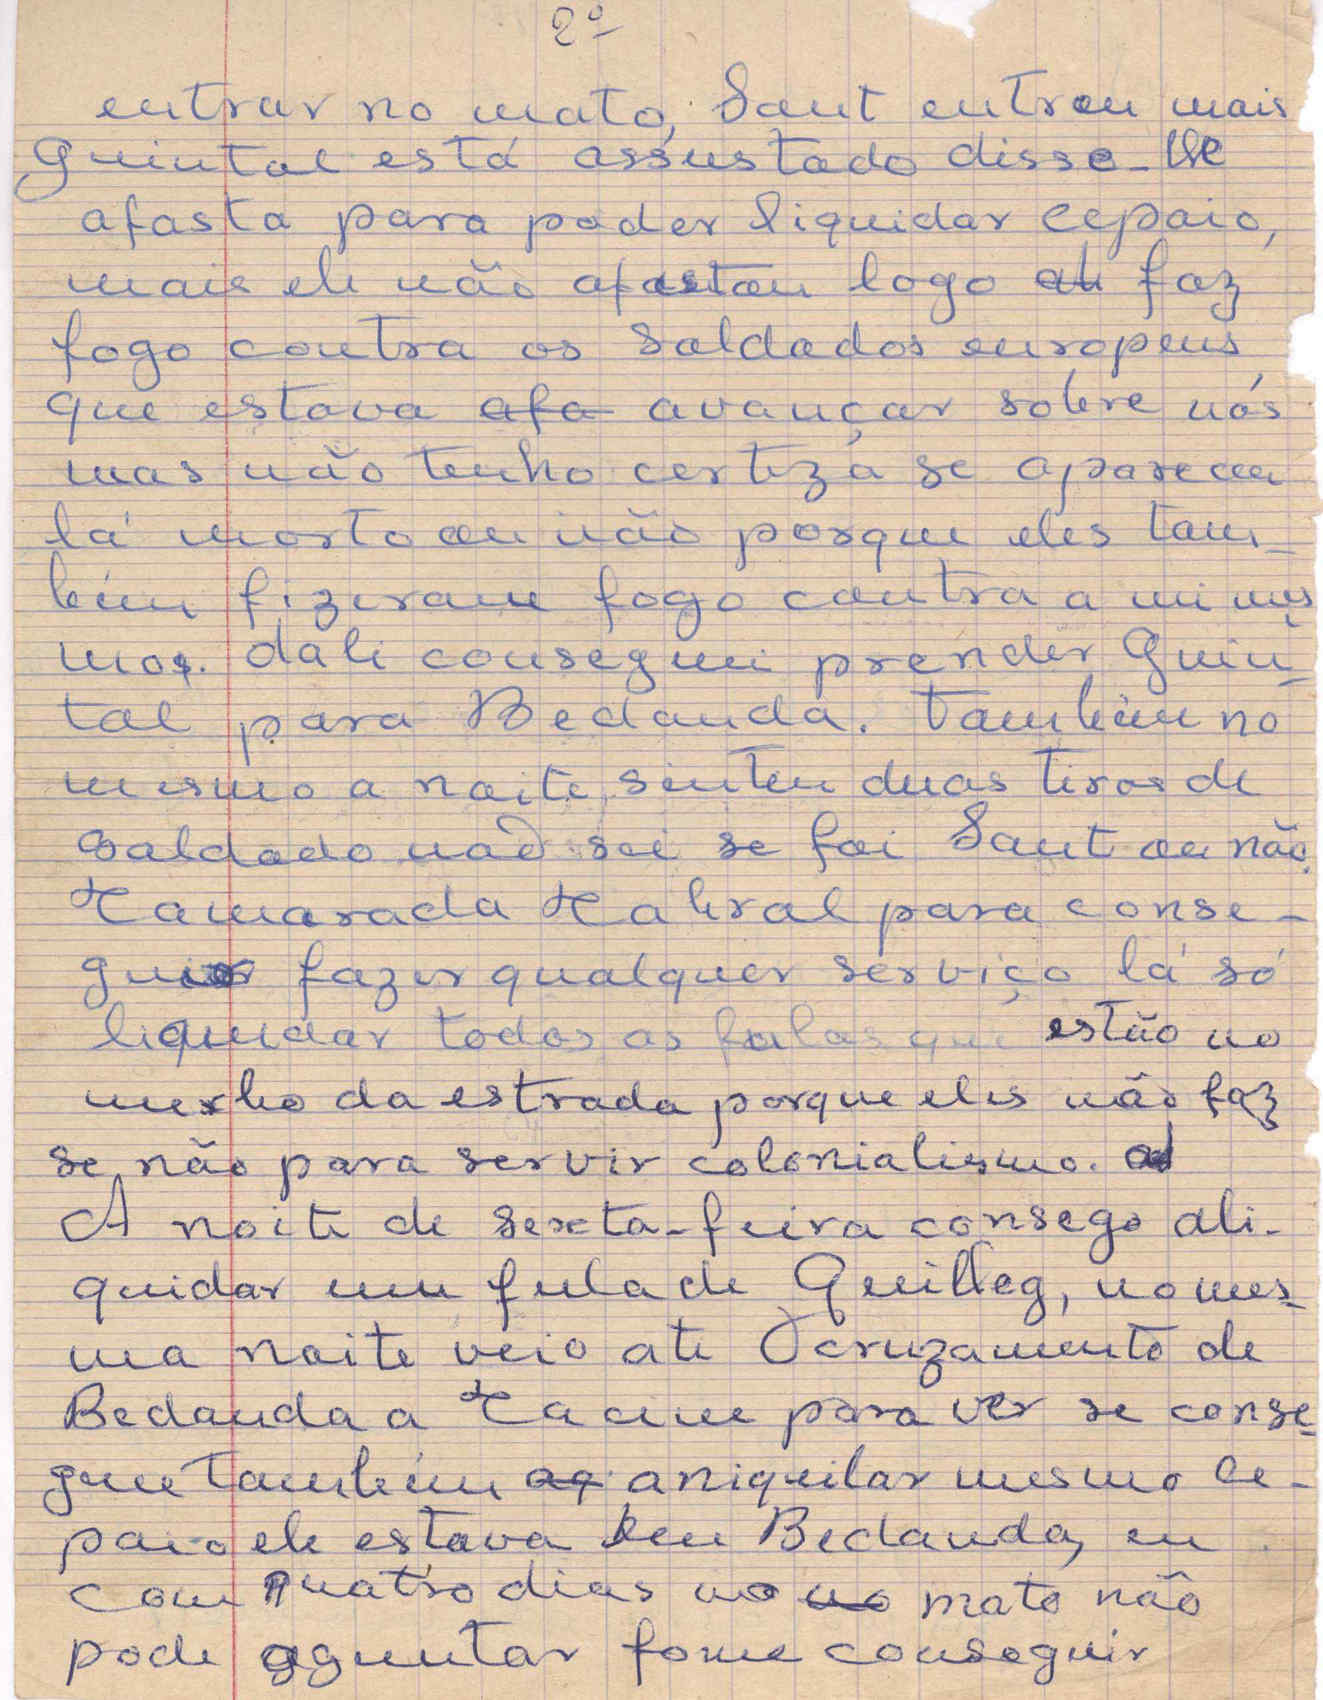 2º
entrar no mato, Sant entrou mais
Quintal está assustado disse-lhe
afasta para poder liquidar cepaio,
mais ele não afastou logo ali faz
fogo contra os soldados europeus
que estava afa avançar sobre nós
mas não tenho certeza se apareceu
lá morto ou não porque eles tam-
bém fizeram fogo contra a mi mes
mos. dali consegui prender Quin-
tal para Bedanda. Também no
mesmo a noite, sinteu duas tiros de
soldado não sei se foi Sant ou não.
Camarada Cabral para conse-
guir fazer qualquer serviço lá só
liquidar todos os fulas que estão no
merho da estrada porque eles não faz
se não para servir colonialismo.
A noite de sexta-feira consego ali-
quidar um fula de Guilleg, no mes-
ma noite veio ate O cruzamento de
Bedanda a Cacine para ver se conse-
gue também aq aniquilar mesmo Ce-
paio ele estava em Bedanda, eu
com quatro dias no no mato não
pode aguntar fome conseguir